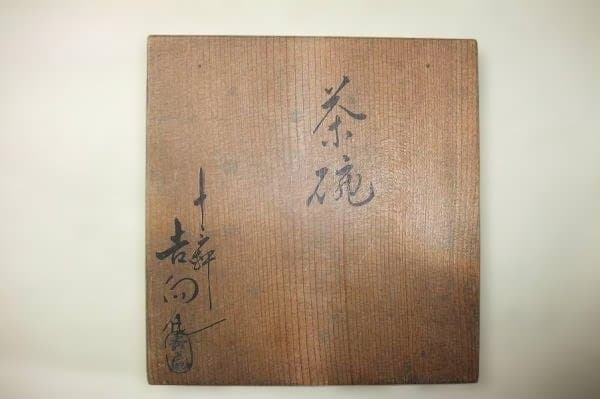 茶碗
十軒
吉向